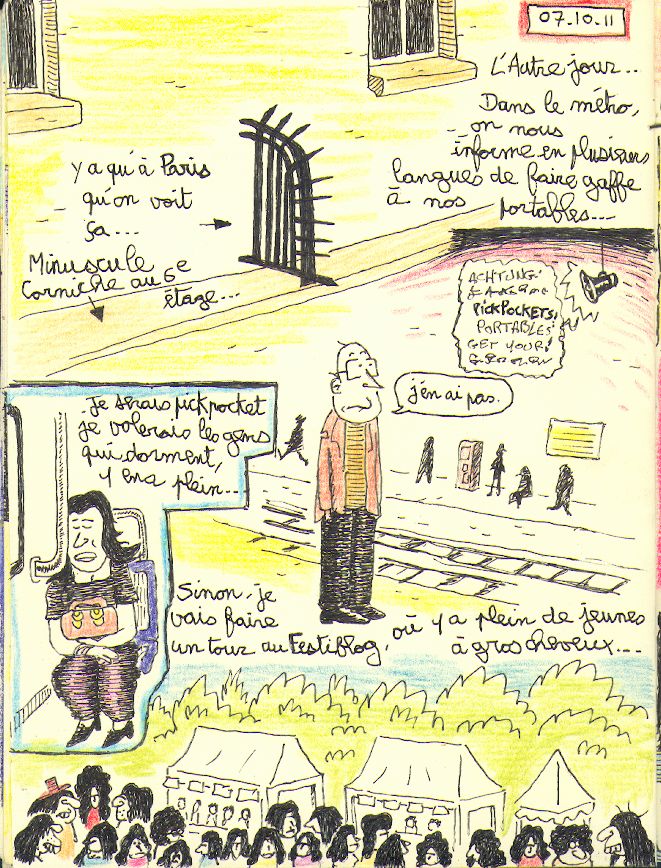 07.10.11
L'Autre jour...
Dans le métro,
on nous
informe en plusieurs
langues de faire gaffe
à nos portables...
y a qu'à Paris
qu'on voit
ça...
Minuscule
Corniche au 6e
étage...
ACHTUNG!
PICKPOCKETS!
PORTABLES!
GET YOUR!
j'en ai pas.
Je serais pickpocket
je volerais les gens
qui dorment,
y en a plein...
Sinon, je
vais faire
un tour au Festiblog,
où y a plein de jeunes
à gros cheveux...